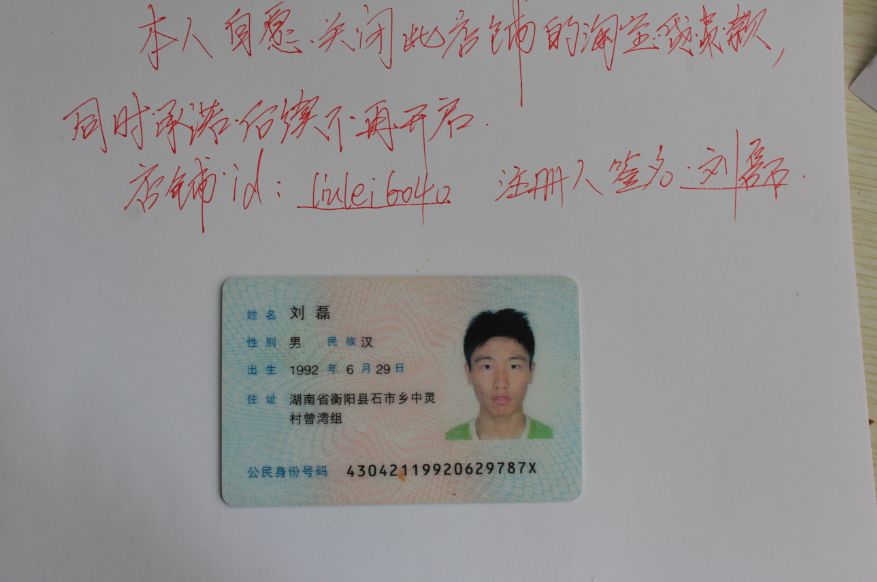 本人自愿关闭此店铺的淘宝贷贷款,
同时承诺后续不再开启.
店铺id: liulei6040 注册人签名:刘磊.
姓名 刘磊
性别 男 民族 汉
出生 1992 年 6 月 29 日
住址 湖南省衡阳县石市乡中灵
村曾湾组
公民身份号码 43042119920629787X